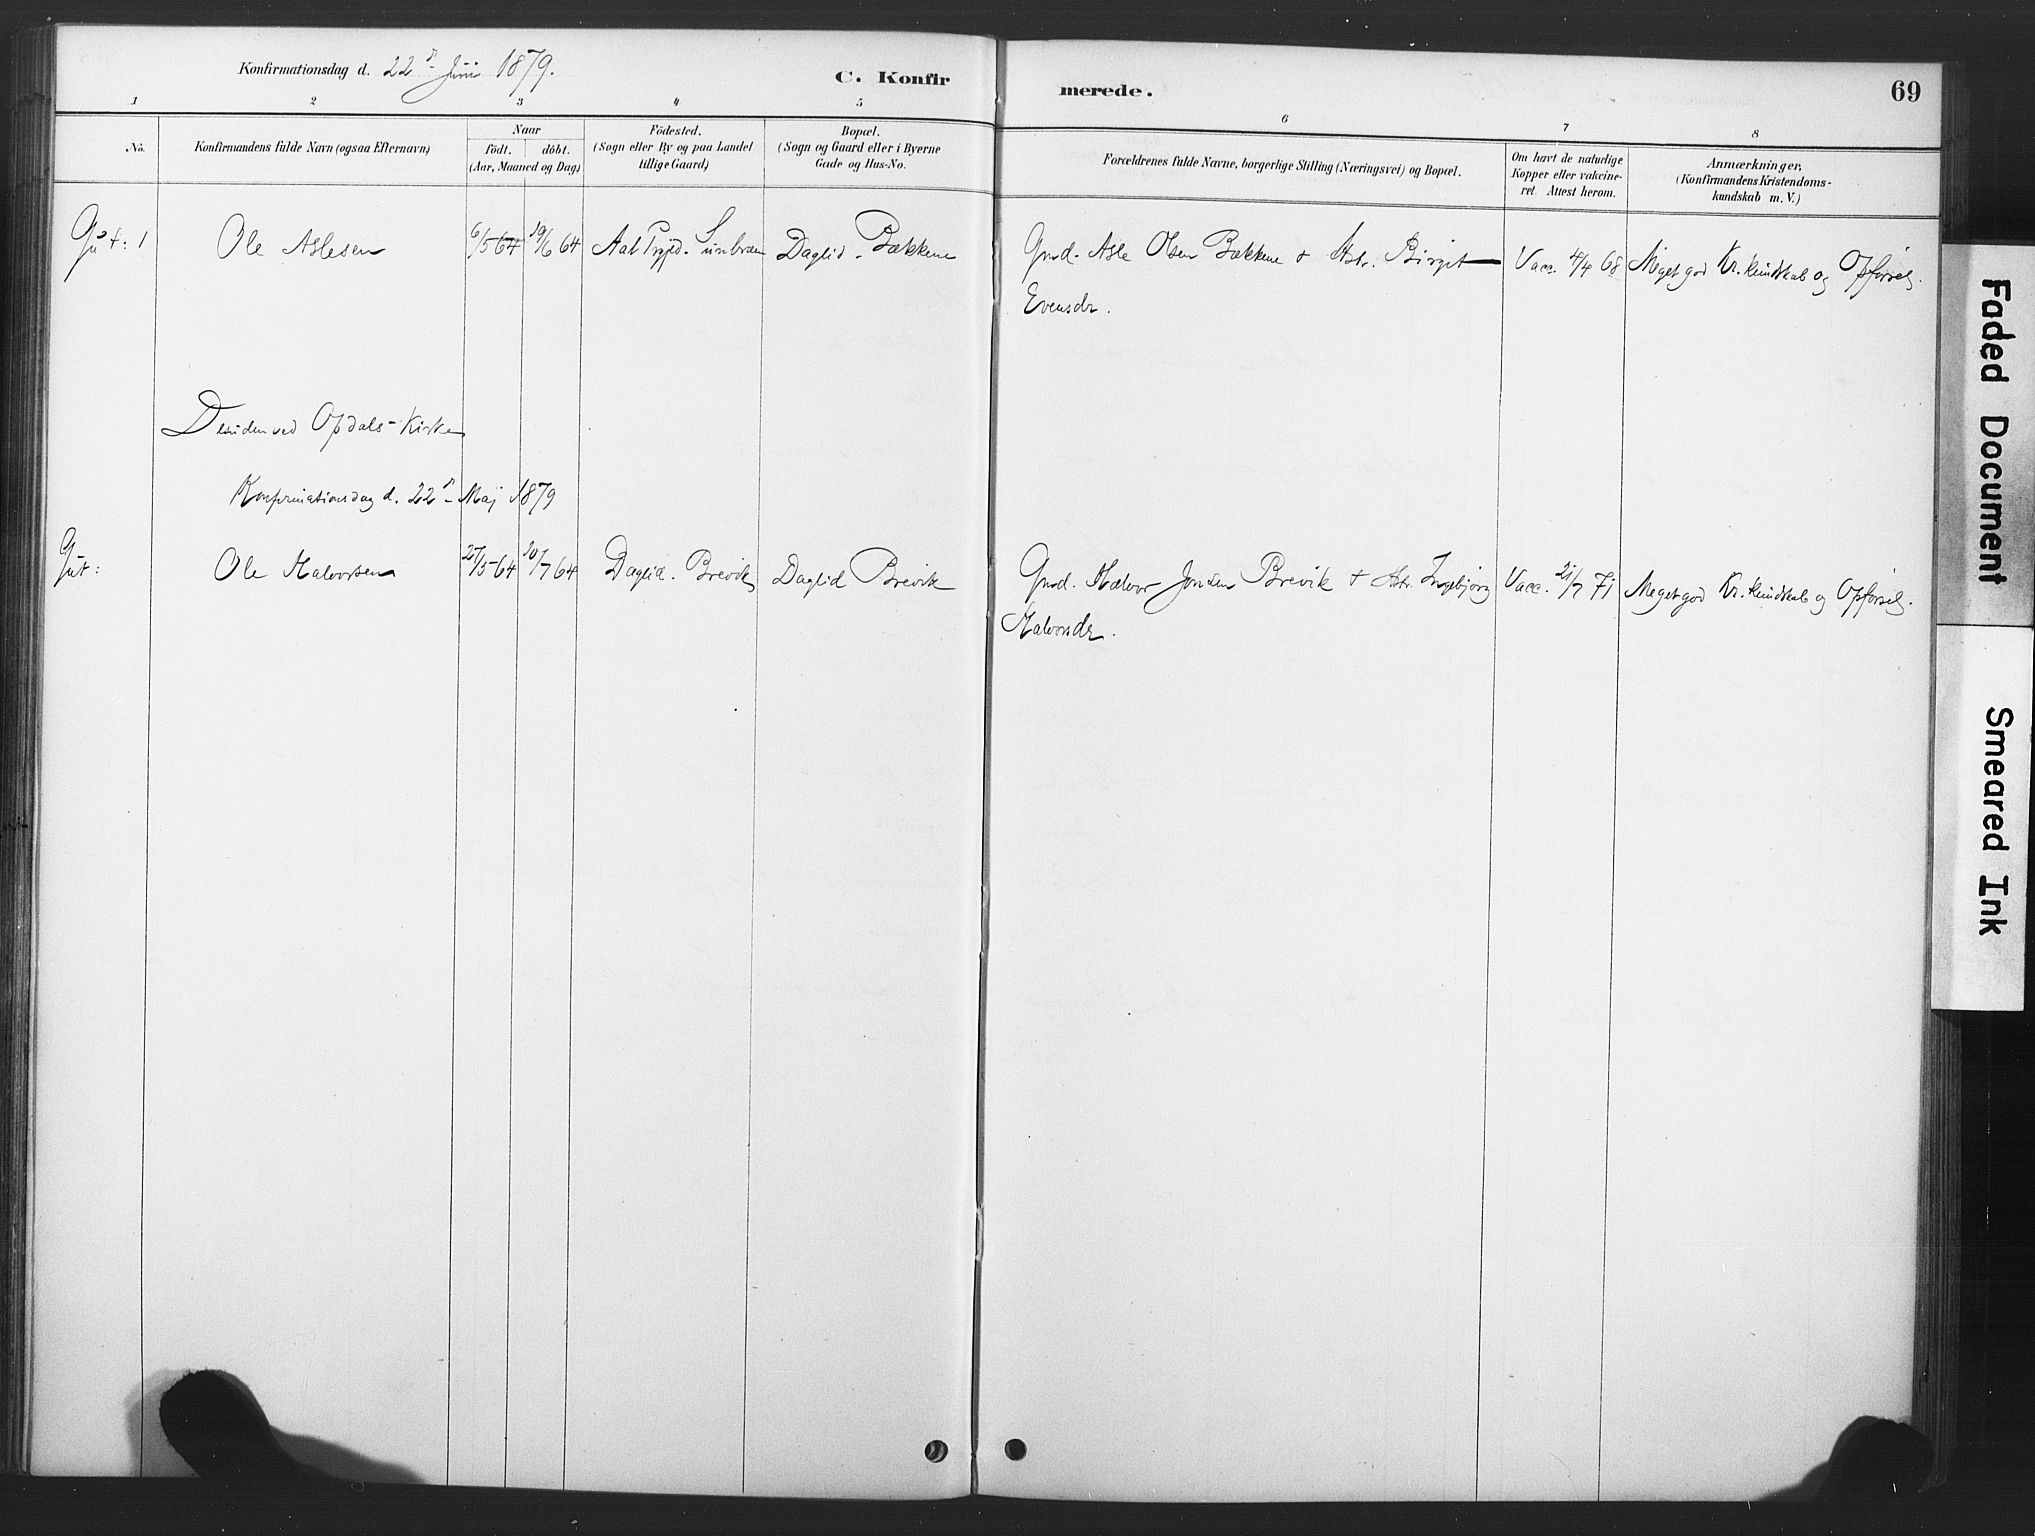 Konfirmationsdag d. 22d Juni 1879.
C. Konfirmerede.
69
1 2 3 4 5 6 7 8
No.
Konfirmandens fulde Navn (ogsaa Efternavn)
Naar
födt. döbt.
(Aar, Maaned og Dag)
Födested.
(Sogn eller By og paa Landet
tillige Gaard)
Bopæl.
(Sogn og Gaard eller i Byerne
Gade og Hus-No.
Forældrenes fulde Navne, borgerlige Stilling (Næringsvei) og Bopæl.
Om havt de naturlige
Kopper eller vakcine-
ret. Attest herom.
Anmærkninger,
(Konfirmandens Kristendoms-
kundskab m. V.)
Gut: 1 Ole Aslesen 6/5 64 19/6 64 Aal Prgjd. Daglid. Bækkene Gmd. Asle Olsen Bækkene + Hstr. Birgit Vacc. 4/4 68 Meget god Kr. kundskab og Opførsel.
Evensdr.
Desuden ved Opdals-Kirke
Konfirmationsdag d. 22d Maj 1879
Gut: Ole Halvorsen 27/5 64 10/7 64 Daglid. Brevik Daglid Brevik Gmd. Halvor Jonsen Brevik + Hstr. Ingebjørg Vacc. 21/7 71 Meget god Kr. kundskab og Opførsel.
Halvorsdr.
Faded Document
Smeared Ink